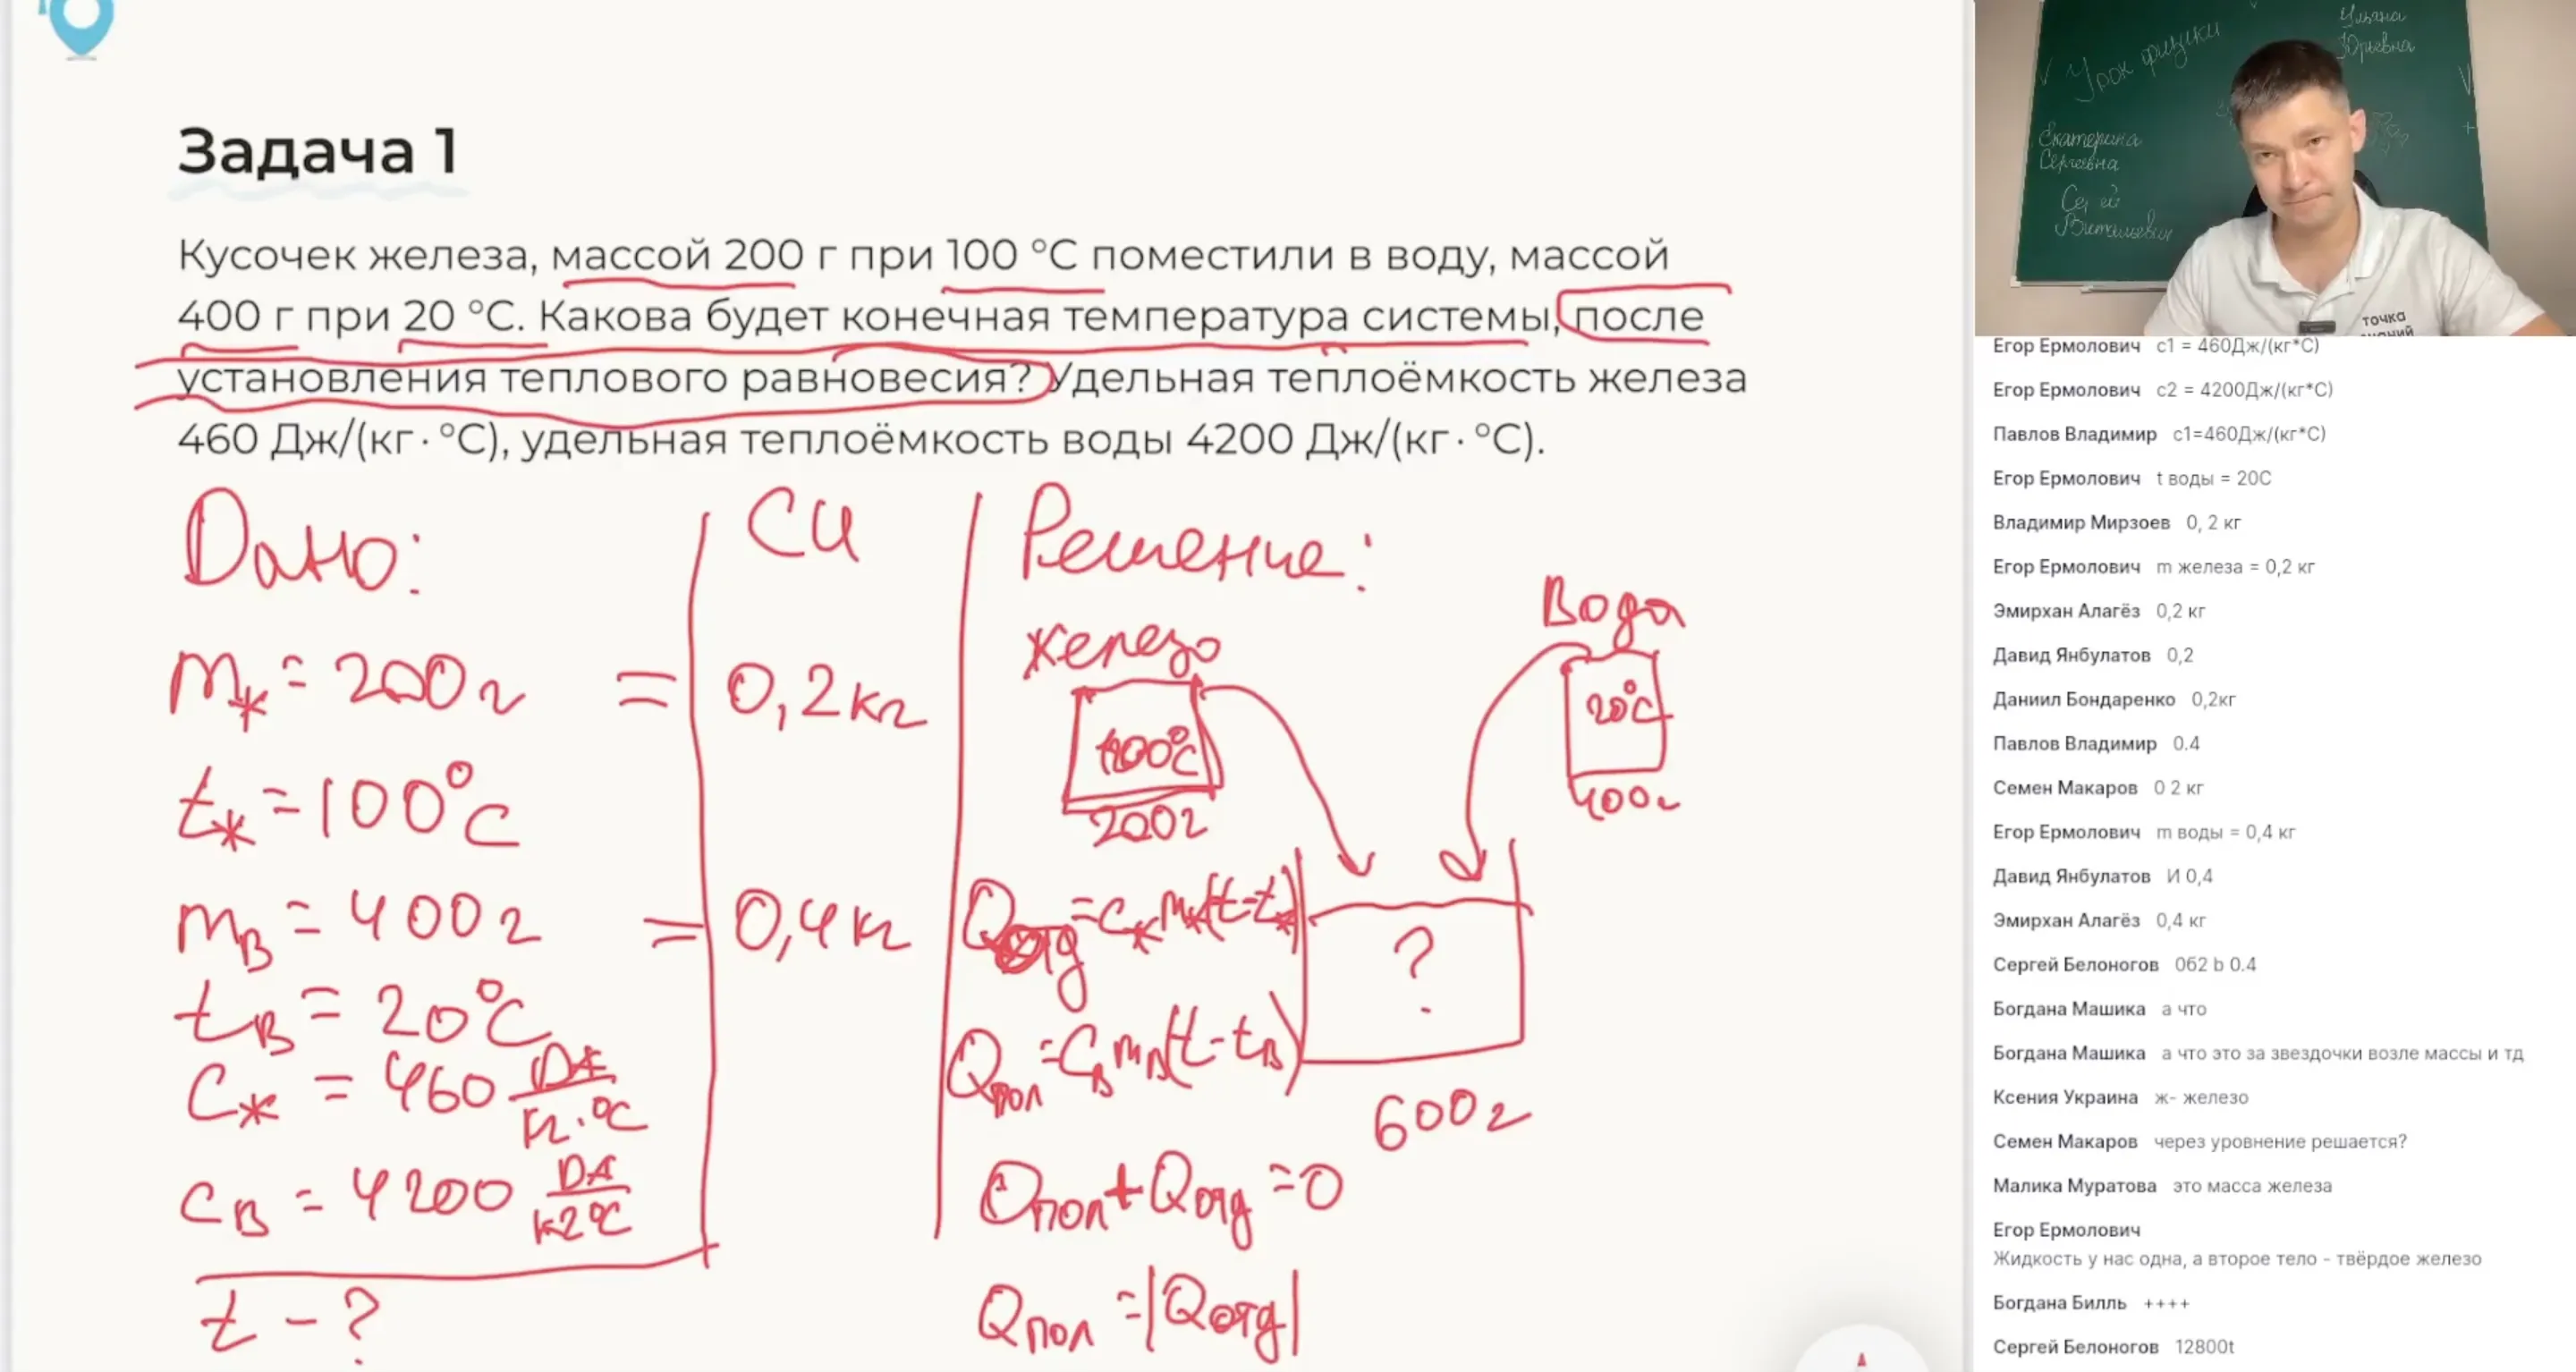 Задача 1
Кусочек железа, массой 200 г при 100 °C поместили в воду, массой
400 г при 20 °C. Какова будет конечная температура системы, после
установления теплового равновесия? Удельная теплоёмкость железа
460 Дж/(кг · °C), удельная теплоёмкость воды 4200 Дж/(кг · °C).
Дано:
mж = 200г
tж = 100°C
mв = 400г
tв = 20°C
cж = 460 Дж/кг·°C
cв = 4200 Дж/кг°C
t - ?
СИ
= 0,2кг
= 0,4кг
Решение:
железо
100°C
200г
Вода
20°C
400г
?
600г
Qотд = cжmж(t-tж)
Qпол = cвmв(t-tв)
Qпол + Qотд = 0
Qпол = |Qотд|
Урок физики
Ульяна
Юрьевна
Екатерина
Сергеевна
Сергей
Витальевич
точка
Егор Ермолович c1 = 460Дж/(кг*С)
Егор Ермолович c2 = 4200Дж/(кг*С)
Павлов Владимир c1=460Дж/(кг*С)
Егор Ермолович t воды = 20С
Владимир Мирзоев 0, 2 кг
Егор Ермолович m железа = 0,2 кг
Эмирхан Алагёз 0,2 кг
Давид Янбулатов 0,2
Даниил Бондаренко 0,2кг
Павлов Владимир 0.4
Семен Макаров 0 2 кг
Егор Ермолович m воды = 0,4 кг
Давид Янбулатов И 0,4
Эмирхан Алагёз 0,4 кг
Сергей Белоногов 0б2 b 0.4
Богдана Машика а что
Богдана Машика а что это за звездочки возле массы и тд
Ксения Украина ж- железо
Семен Макаров через уровнение решается?
Малика Муратова это масса железа
Егор Ермолович
Жидкость у нас одна, а второе тело - твёрдое железо
Богдана Билль ++++
Сергей Белоногов 12800t